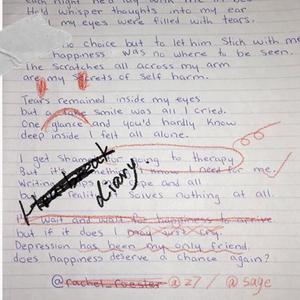 Each night he'd lay with me in bed
Held whisper thoughts into my ear
my eyes were filled with tears.
no choice but to let him stick with me
happiness was no where to be seen.
The scratches all across my arm
are my secrets of self harm.
Tears remained inside my eyes
but a fake smile was all I cried.
One glance and you'd hardly know
deep inside I felt all alone.
I get shamed for going to therapy
But it's something I know I need for me.
Writing and all
but reality solves nothing at all.
diary.
I wait and wait for happiness to arrive
but if it does I pray will cry.
Depression has been my only friend,
does happiness deserve a chance again?
@rachel_foester @z7 / @sage